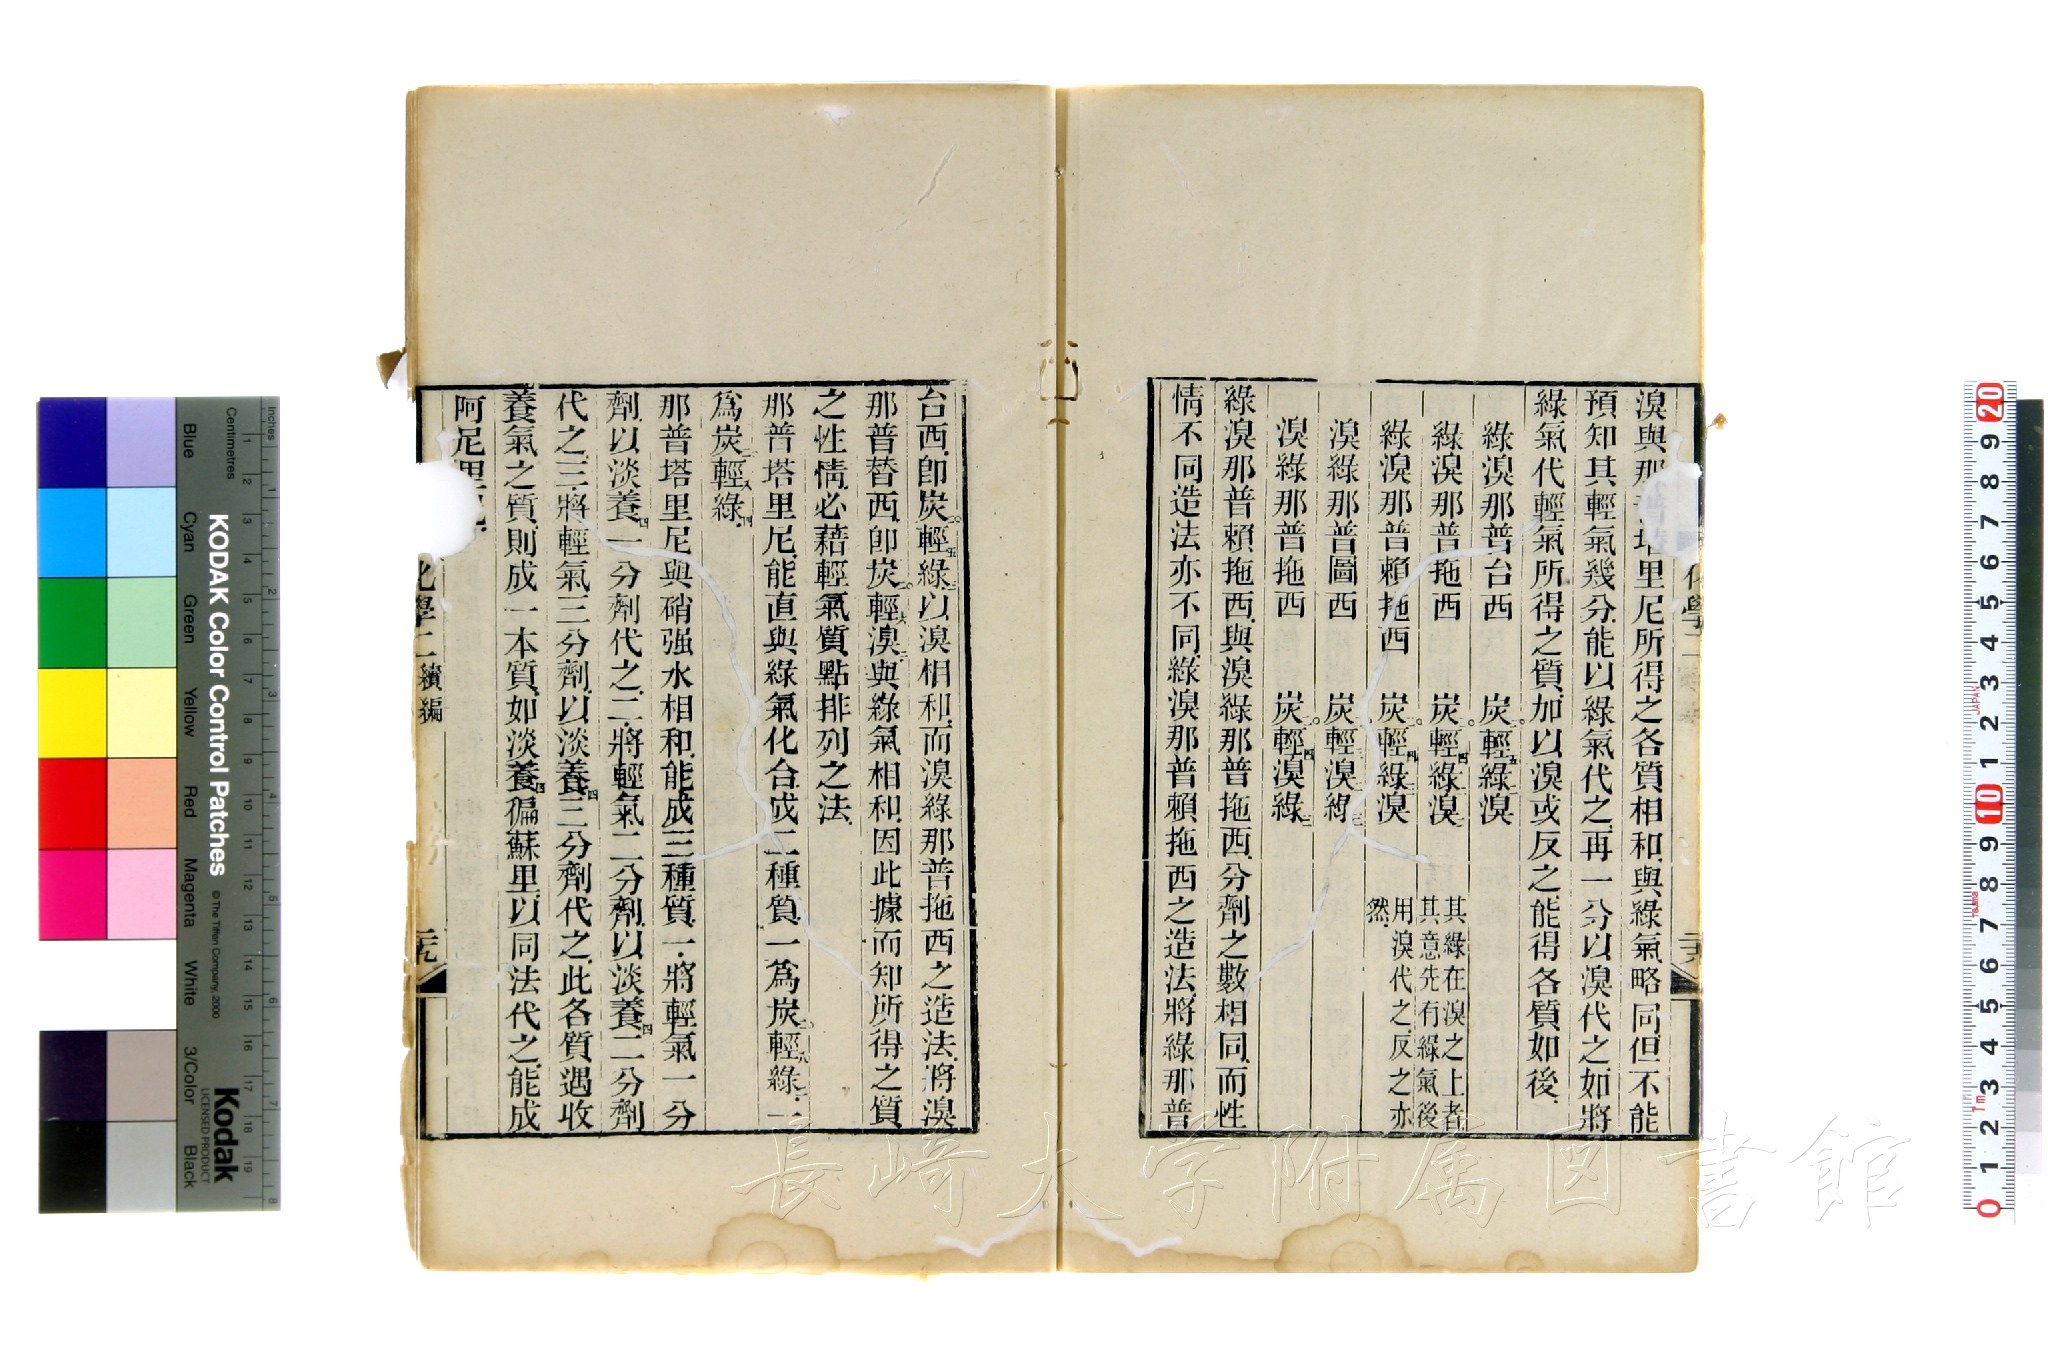 溴與那普塔里尼所得之各質相和與綠氣略同但不能
預知其輕氣幾分能以綠氣代之再一分以溴代之如將
綠氣代輕氣所得之質加以溴或反之能得各質如後
綠溴那普台西 炭二〇輕五綠二溴
綠溴那普拖西 炭二〇輕四綠溴二
綠溴那普賴拖西 炭二〇輕四綠二溴二
溴綠那普圖西 炭二〇輕三溴二綠三
溴綠那普拖西 炭二〇輕四溴綠三
其綠在溴之上者
其意先有綠氣後
用溴代之反之亦
然
綠溴那普賴拖西與溴綠那普拖西分劑之數相同而性
情不同造法亦不同綠溴那普賴拖西之造法將綠那普
化學二
二十八
台西卽炭二〇輕五綠三以溴相和而溴綠那普拖西之造法將溴
那普替西卽炭二〇輕六溴二與綠氣相和因此據而知所得之質
之性情必藉輕氣質點排列之法
那普塔里尼能直與綠氣化合成二種質一爲炭二〇輕八綠二一
爲炭二〇輕八綠四
那普塔里尼與硝强水相和能成三種質一將輕氣一分
劑以淡養四一分劑代之二將輕氣二分劑以淡養四二分劑
代之三將輕氣三分劑以淡養四三分劑代之此各質遇收
養氣之質則成一本質如淡養四徧蘇里以同法代之能成
阿尼里尼
化學二 續編
二十九
KODAK Color Control Patches
© The Tiffen Company, 2000
Kodak
LICENSED PRODUCT
Inches
Centimetres
Blue Cyan Green Yellow Red Magenta White 3/Color Black
長崎大学附属図書館
JAPAN
Tajima